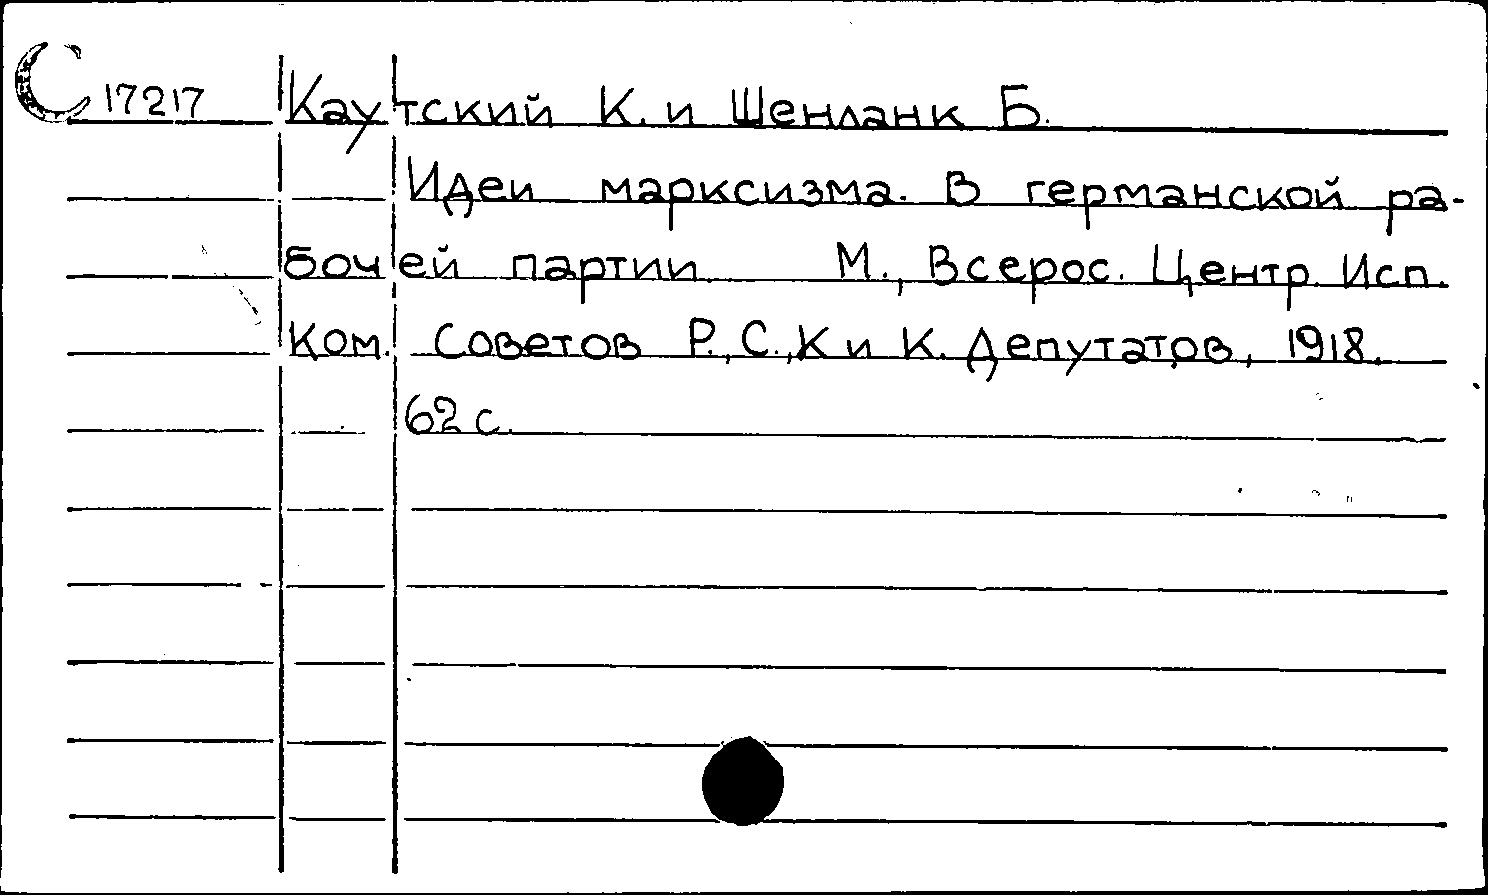 С 17217 Каутский К. и Шенланк Б.
Идеи марксизма. В германской ра-
бочей партии М., Всерос. Центр. Исп.
Ком. Советов Р., С., К и К. Депутатов, 1918.
62 с.